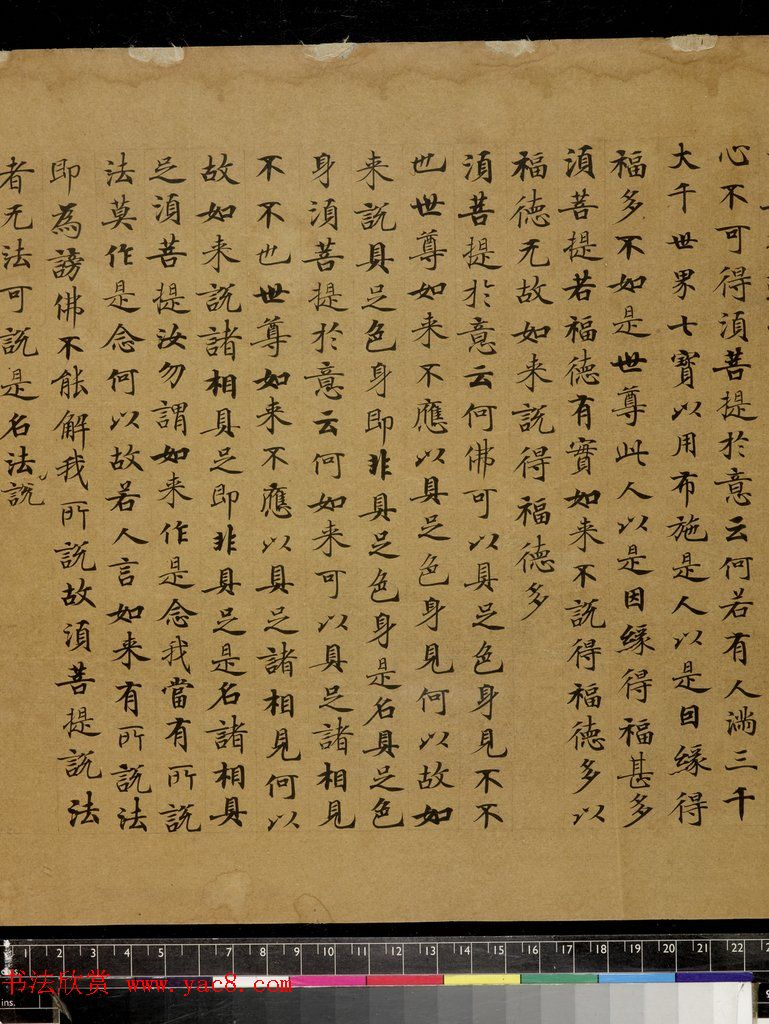 心不可得須菩提於意云何若有人滿三千
大千世界七寶以用布施是人以是因緣得
福多不如是世尊此人以是因緣得福甚多
須菩提若福德有實如来不說得福德多以
福德无故如来說得福德多
須菩提於意云何佛可以具足色身見不不
也世尊如来不應以具足色身見何以故如
来說具足色身即非具足色身是名具足色
身須菩提於意云何如来可以具足諸相見
不不也世尊如来不應以具足諸相見何以
故如来說諸相具足即非具足是名諸相具
足須菩提汝勿謂如来作是念我當有所說
法莫作是念何以故若人言如来有所說法
即為謗佛不能解我所說故須菩提說法
者无法可說是名法說
1 2 3 4 5 6 7 8 9 10 11 12 13 14 15 16 17 18 19 20 21 22
ins.
书法欣赏 www.yac8.com